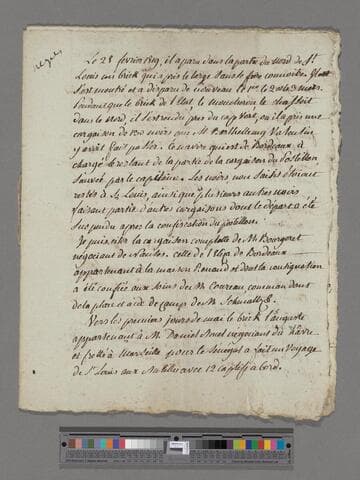 Le 25 fevrier 1819, il a paru dans la partie du Nord de St
Louis un brick qui a pris le large dans le fort connoitre. Il
s'est montré et a disparu de nouveau le 1er le 2 et le 3 mars.
Pendant que le brick de l'Etat, le moucheron le chassoit
dans le Nord, il s'est rendu près du cap Vert, où il a pris une
cargaison de noirs que M. Valentin
y avoit fait passer. Ce navire qui est de Bordeaux, a
chargé le restant de la partie de la cargaison du Postillon
sauvée par le capitaine. Les noirs non saisis étoient
restés à St Louis, ainsi que plusieurs autres noirs
faisant partie d'autres cargaisons dont le départ a été
suspendu après la confiscation du postillon.
Je puis citer la cargaison complette de M. Bourgoret
négociant de Nantes. celle de l'Eliza de Bordeaux
appartenant à la maison Renaud et dont la consignation
a été confiée aux soins de M. Coureau, commandant
de la place et aide de camp de M. Schmaltz.
Vers les premiers jours de mai le brick l'auguste
appartenant à M. Daniel Ancel négociant du Havre
et fretté à Marseille pour le Sénégal a fait un voyage
de St Louis aux Antilles avec 12 captifs à bord.